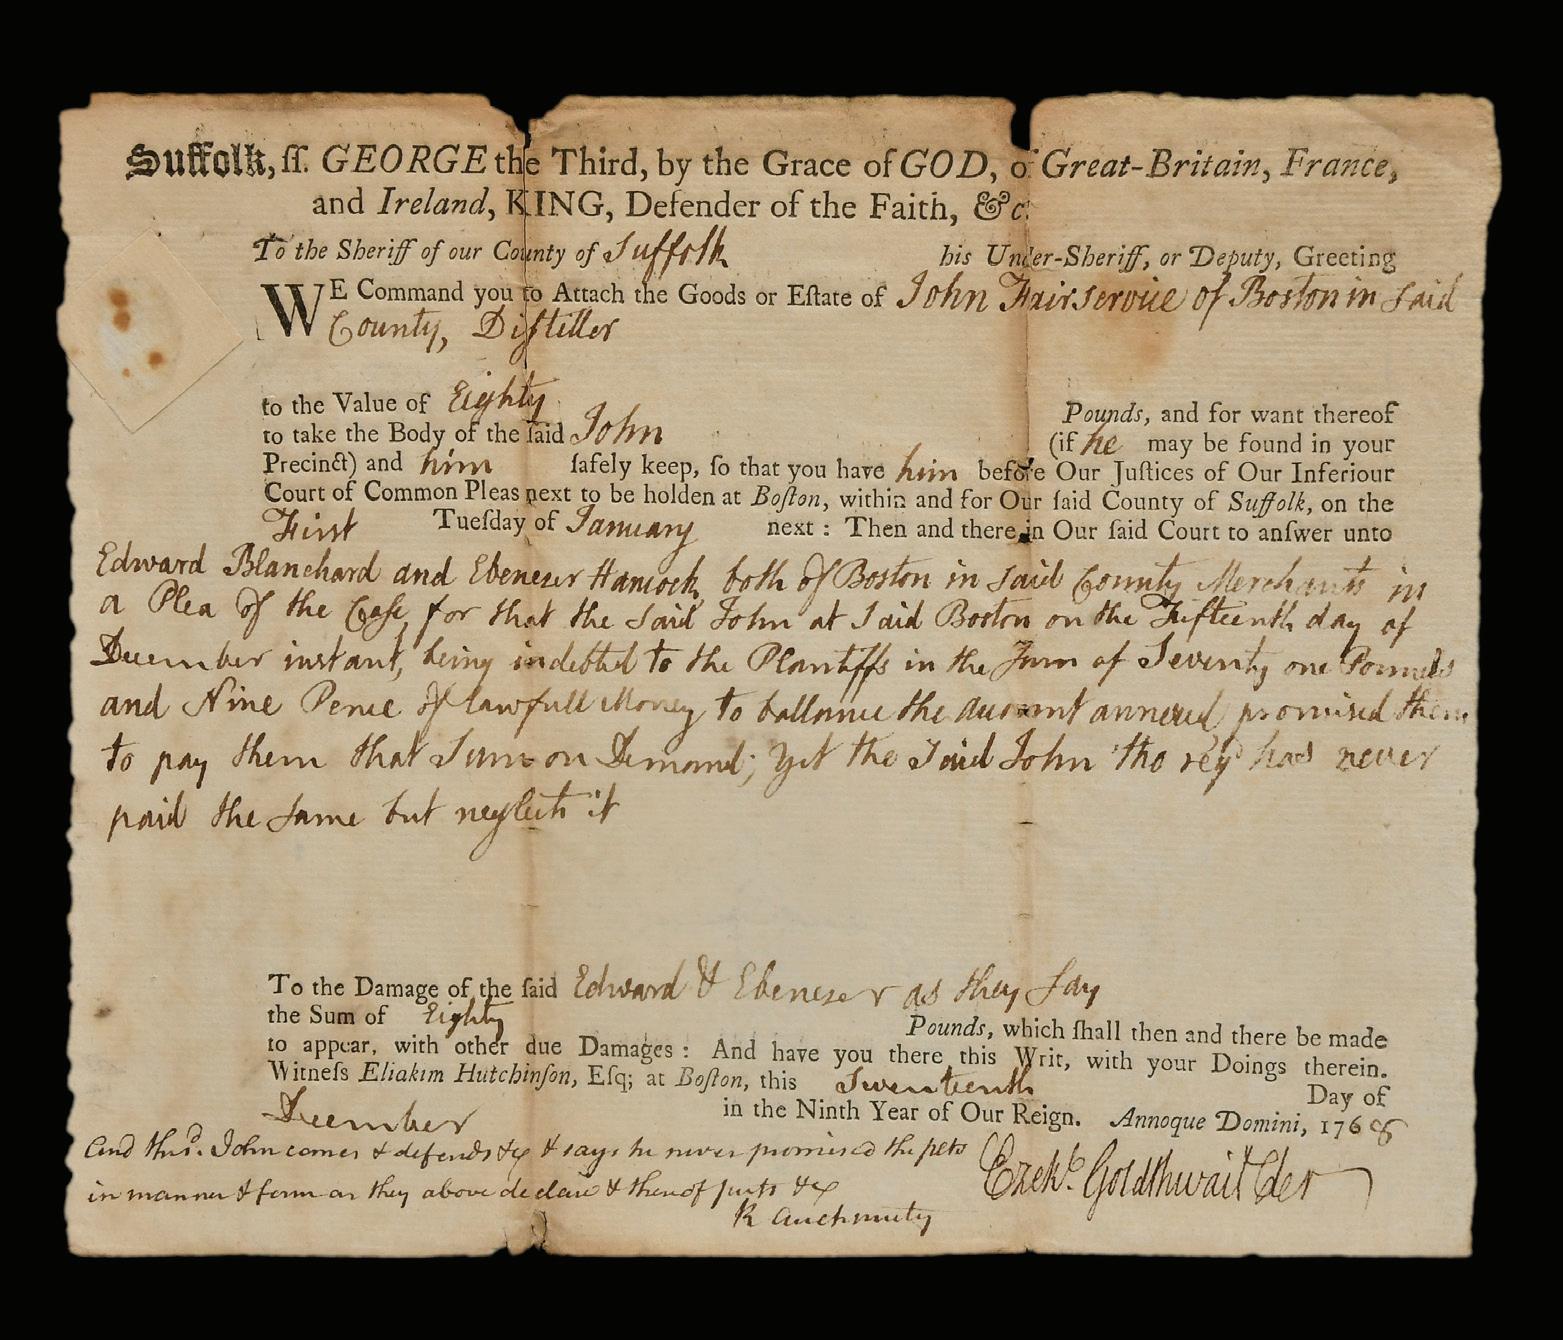 Suffolk, ſſ. GEORGE the Third, by the Grace of GOD, of Great-Britain, France,
and Ireland, KING, Defender of the Faith, &c.
To the Sheriff of our County of Suffolk his Under-Sheriff, or Deputy, Greeting
WE Command you to Attach the Goods or Eſtate of John Fairservice of Boston in said
County, Diſtiller
to the Value of Eighty Pounds, and for want thereof
to take the Body of the ſaid John (if he may be found in your
Precinct) and him ſafely keep, ſo that you have him before Our Juſtices of Our Inferiour
Court of Common Pleas next to be holden at Boſton, within and for Our ſaid County of Suffolk, on the
First Tueſday of January next : Then and there in Our ſaid Court to anſwer unto
Edward Blanchard and Ebenezer Hancock, both of Boston in said County Merchants in
a Plea of the Caſe, for that the said John at said Boston on the Fifteenth day of
December instant, being indebted to the Plantiffs in the Sum of Seventy one Pounds
and Nine Pence of lawfull Money to ballance the account annexed, promised them
to pay them that Sum on Demand; Yet the said John tho reqd has never
paid the same but neglects it
To the Damage of the ſaid Edward & Ebenezer as they say
the Sum of Eighty Pounds, which ſhall then and there be made
to appear, with other due Damages : And have you there this Writ, with your Doings therein.
Witneſs Eliakim Hutchinſon, Eſq; at Boſton, this Twentieth Day of
December in the Ninth Year of Our Reign. Annoque Domini, 1768
And the sd. John comes & defends &c & says he never promised the plts
in manner & form as they above declare & thereof puts &c
R Auchmuty
Ezekl. Goldthwait Cler